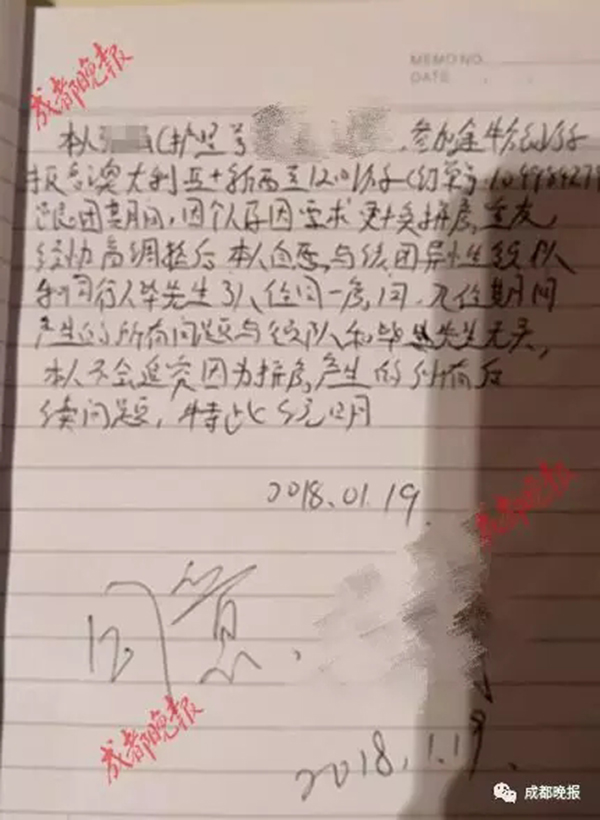 MEMO NO.
DATE
成都晚报
本人 (护照号 , 参加
报名澳大利亚+新西兰12日游(订单号:
跟团期间,因个人原因要求更换拼房室友,
经协商调整后本人自愿与该团异性领队
和同行人毕先生3人住同一房间,入住期间
产生的所有问题与领队和毕先生无关,
本人不会追究因为拼房产生的所有后
续问题,特此说明
2018.01.19.
成都晚报
同意.
成都晚报
2018.1.19.
成都晚报